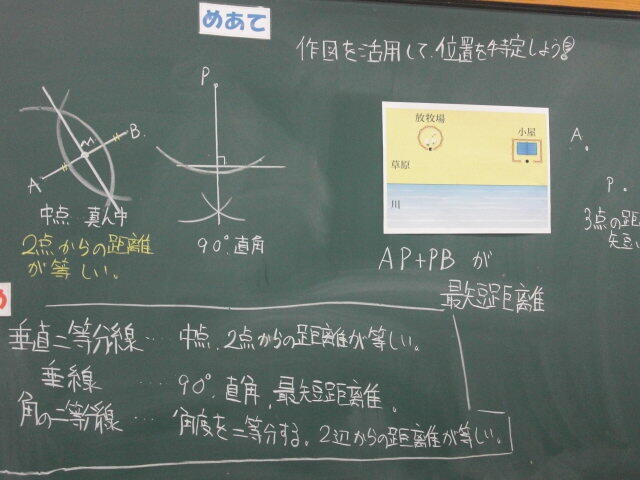 めあて
作図を活用して、位置を特定しよう!
P
B.
M
A
中点 真ん中
2点からの距離
が等しい。
90°.直角
放牧場
小屋
草原
川
AP+PBが
最短距離
A.
P.
3点の距
垂直二等分線… 中点、2点からの距離が等しい。
垂線 …… 90°.直角、最短距離。
角の二等分線 …… 角度を二等分する。2辺からの距離が等しい。